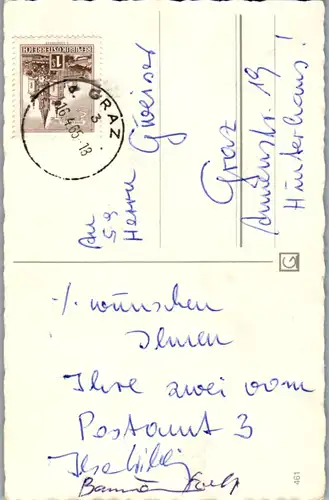 REPUBLIK ÖSTERREICH
GRAZ
3
26.4.65-18
An
S.g.
Herrn
Gweiser
Graz
Annenstr. 19
Hinterhaus!
G
./. wünschen
Ihnen
Ihre zwei vom
Postamt 3
461